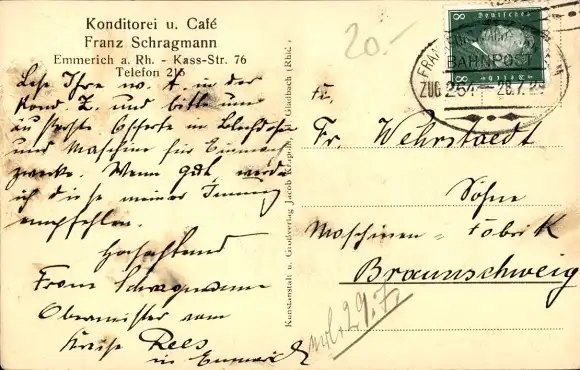 Konditorei u. Café
Franz Schragmann
Emmerich a. Rh. - Kass-Str. 76
Telefon 215
Lese Ihre w. A. in der
Kond. Z. und bitte um
und Maschine für
zwecke. Wenn gut, werde
ich diese meiner Innung
empfehlen.
Hochachtend
Franz Schragmann
Obermeister vom
Kreise Rees
in Emmerich
Kunstanstalt u. Großverlag Jacob Krapohl, Gladbach (Rhld.)
20.-
8 Deutsches 8
BAHNPOST
ZUG 264 28.7.29
Fr. Wehrstaedt
Söhne
Maschinen - Fabrik
Braunschweig
29.7.